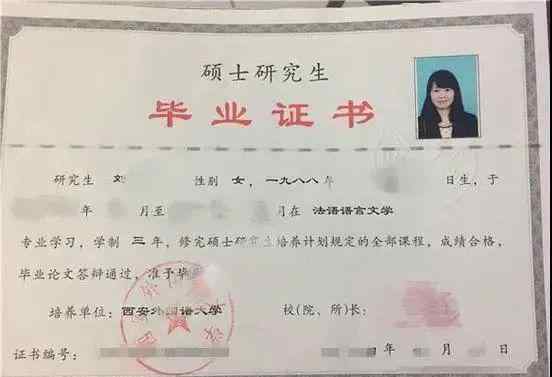 硕士研究生
毕业证书
研究生 刘 性别 女，一九八八年 日生，于
年 月至 月在 法语语言文学
专业学习，学制 三 年，修完硕士研究生培养计划规定的全部课程，成绩合格，
毕业论文答辩通过，准予毕
培养单位：西安外国语大学 校(院、所)长：
证书编号： 年 月 日